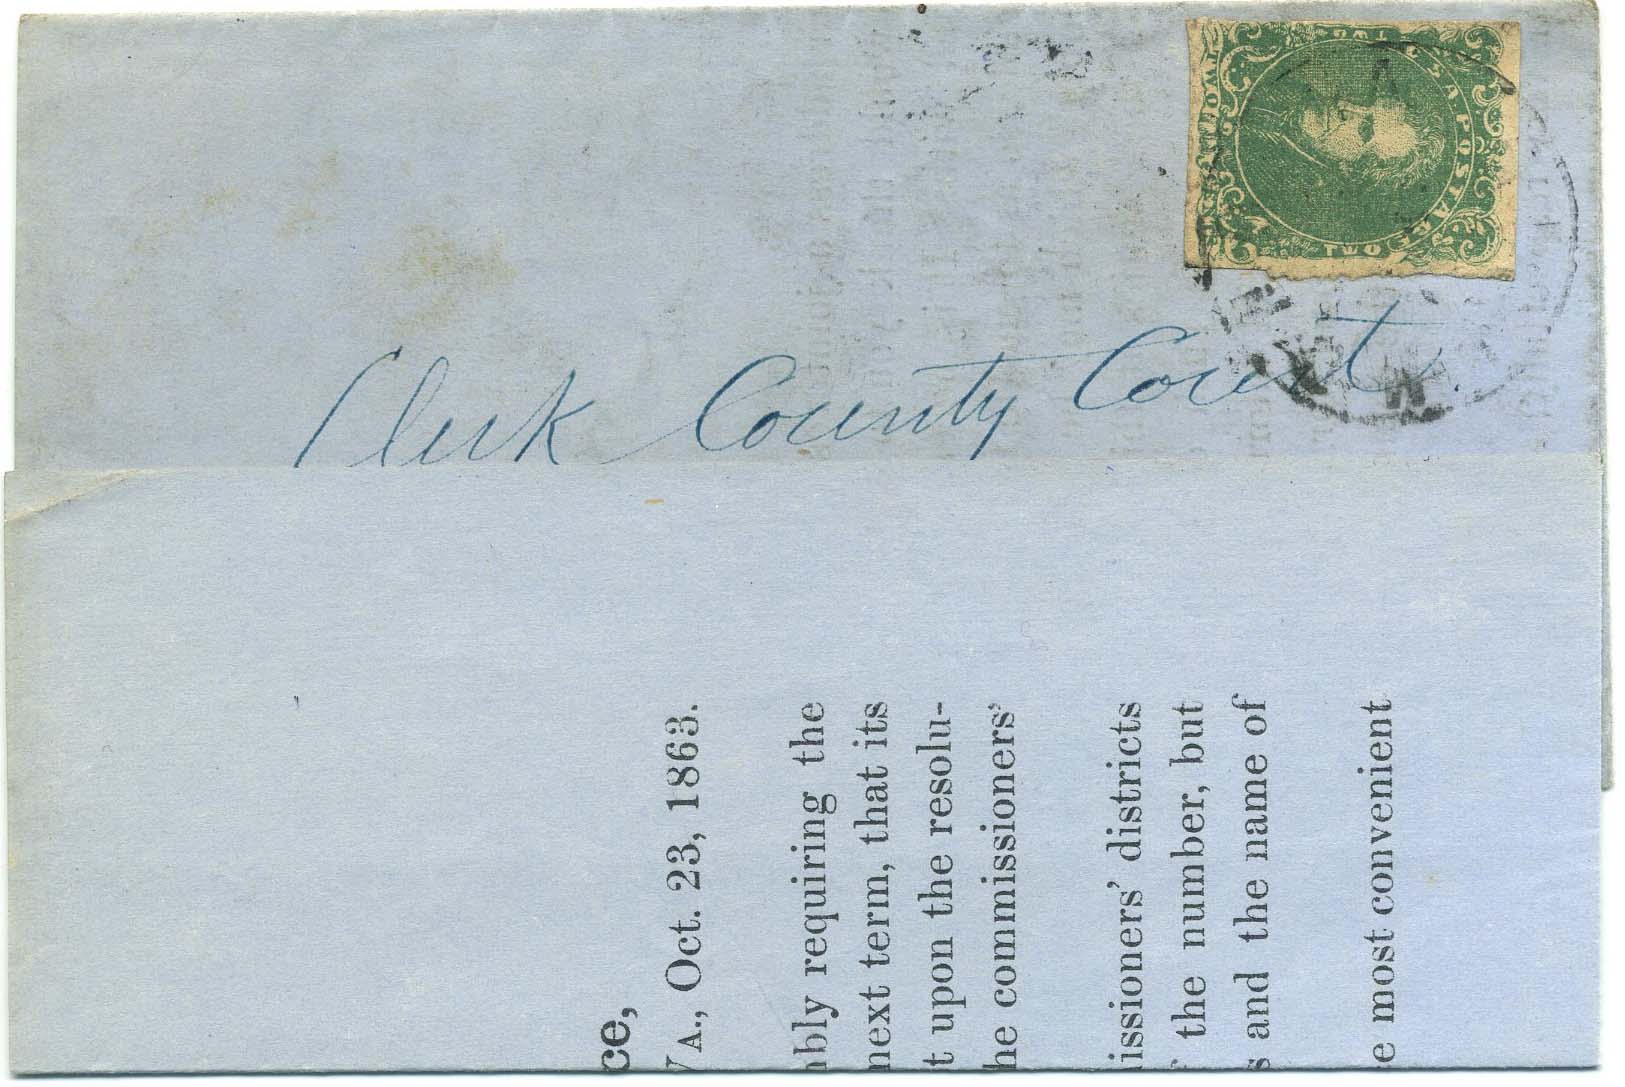 C.S.A. POSTAGE
TWO
TWO
TWO CENTS
Clerk County Court
ce,
VA., Oct. 23, 1863.
bly requiring the
next term, that its
t upon the resolu-
he commissioners'
issioners' districts
the number, but
s and the name of
e most convenient